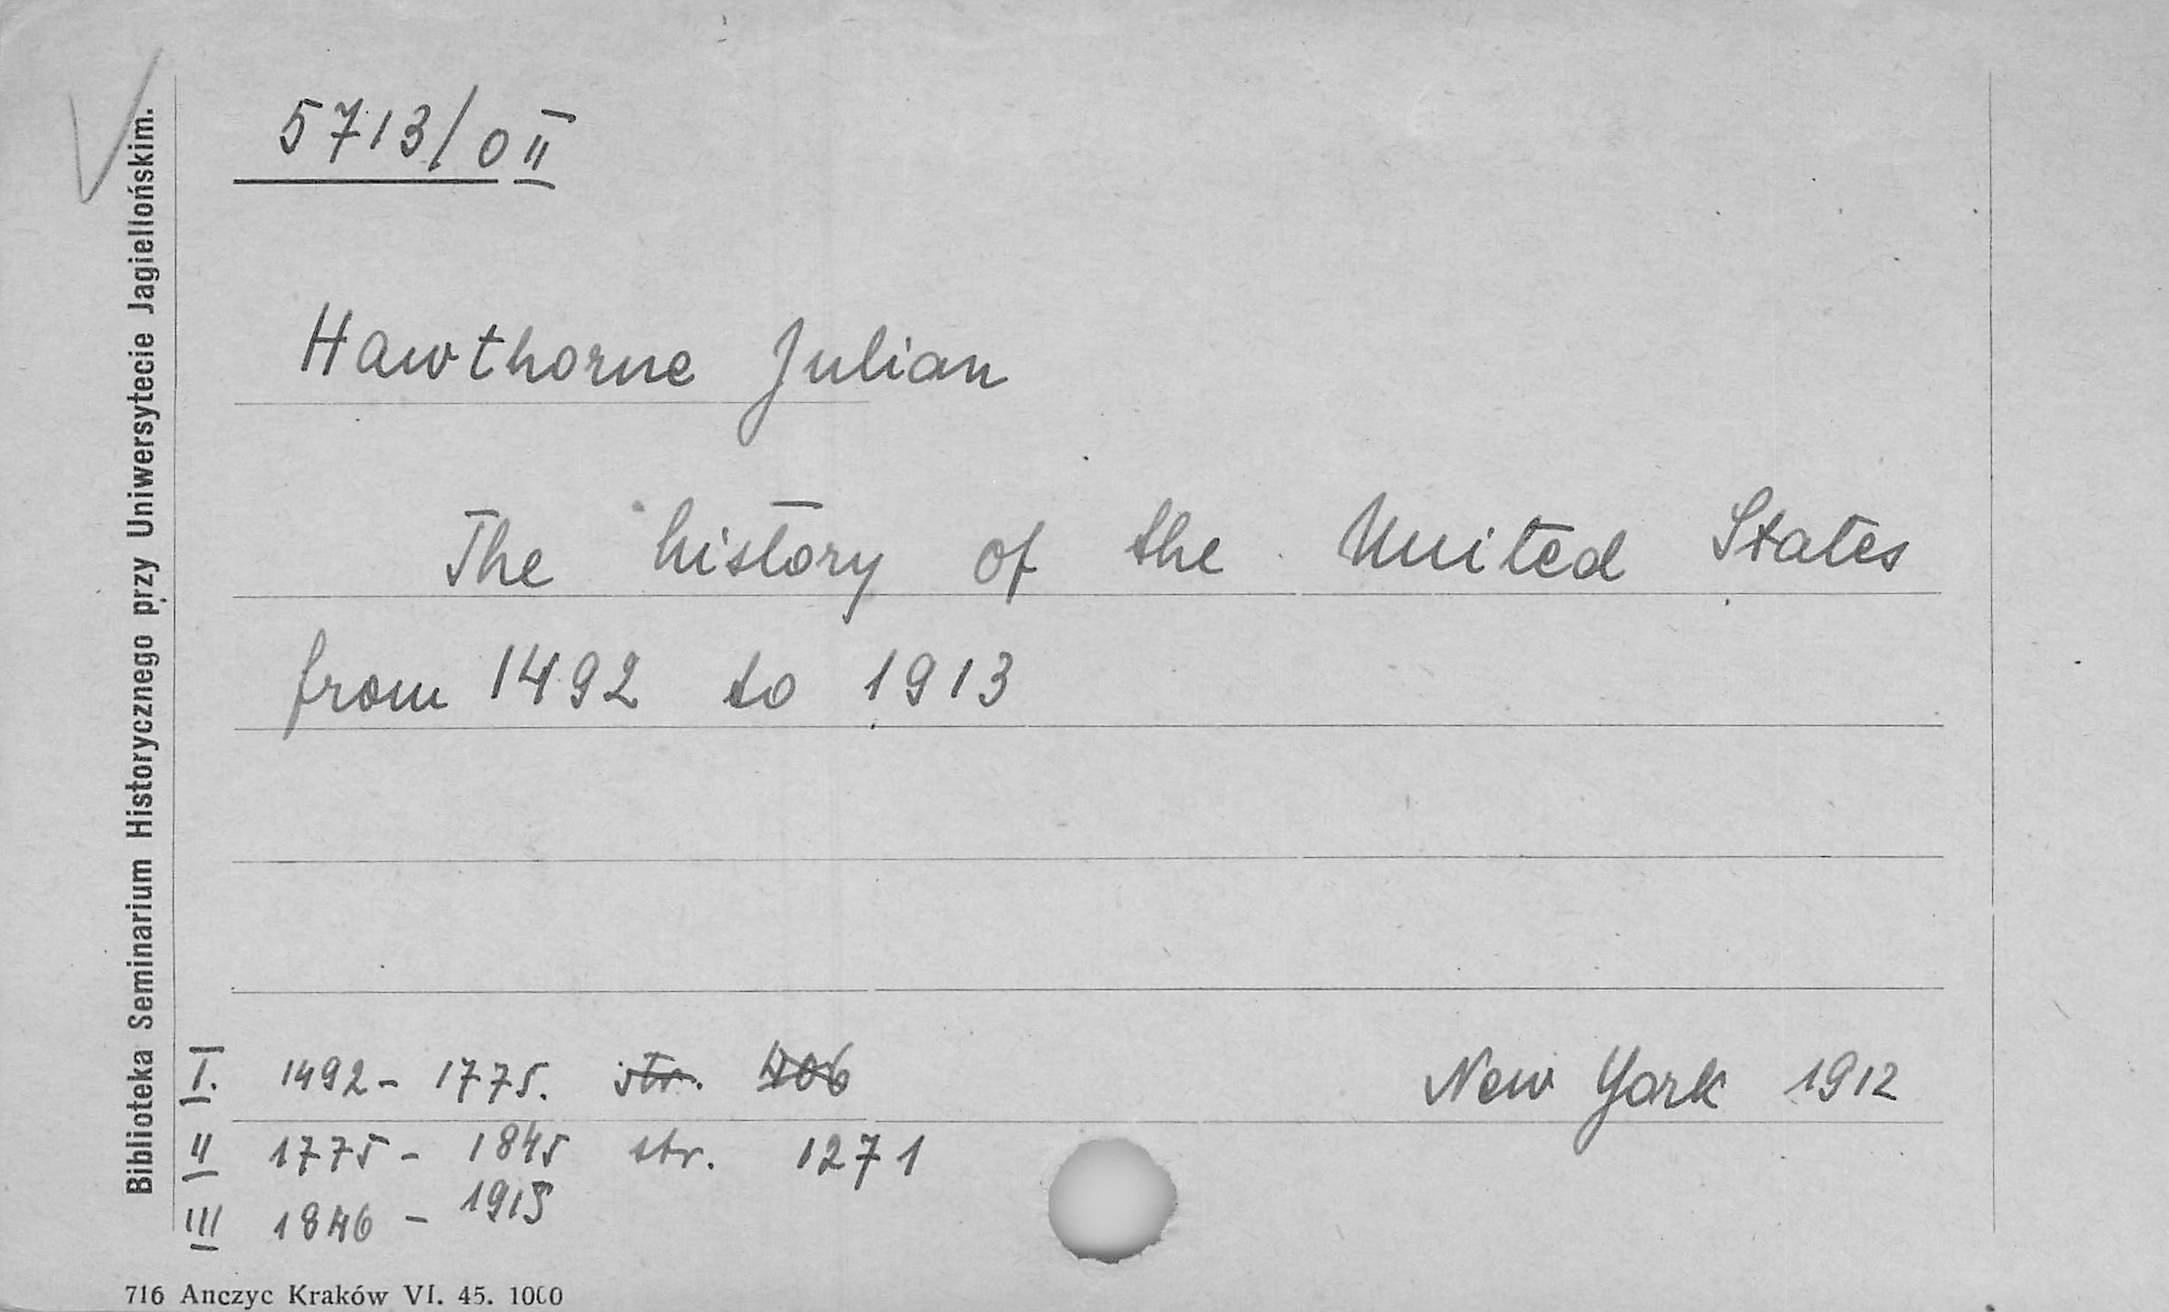 5713/0 II
Hawthorne Julian
The history of the United States
from 1492 to 1913
I. 1492 - 1775. str. 406
New York 1912
II 1775 - 1845 str. 1271
III 1846 - 1913
Biblioteka Seminarium Historycznego przy Uniwersytecie Jagiellońskim.
716 Anczyc Kraków VI. 45. 1000